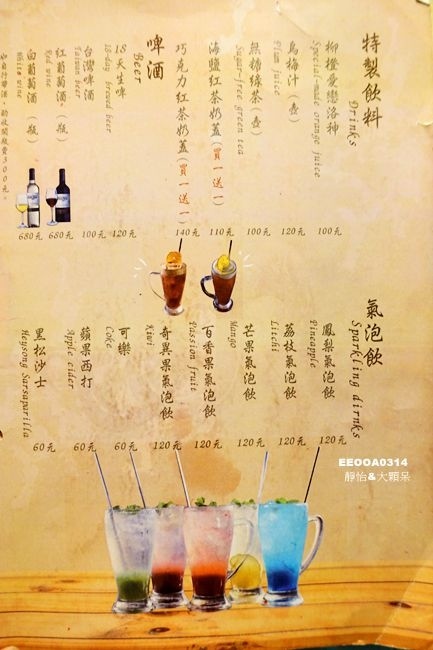 特製飲料
Drinks
柳橙愛戀洛神
Special-made orange juice
100元
烏梅汁（壺）
Plum juice
120元
無糖綠茶（壺）
Sugar-free green tea
100元
海鹽紅茶奶蓋（買一送一）
110元
巧克力紅茶奶蓋（買一送一）
140元
啤酒
Beer
18天生啤
18-day brewed beer
120元
台灣啤酒
Taiwan beer
100元
紅葡萄酒（瓶）
Red wine
680元
白葡萄酒（瓶）
White wine
680元
氣泡飲
Sparkling dirnks
鳳梨氣泡飲
Pineapple
120元
荔枝氣泡飲
Litchi
120元
芒果氣泡飲
Mango
120元
百香果氣泡飲
Passion fruit
120元
奇異果氣泡飲
Kiwi
120元
可樂
Coke
60元
蘋果西打
Apple cider
60元
黑松沙士
Heysong Sarsaparilla
60元
EEOOA0314
靜怡&大顆呆